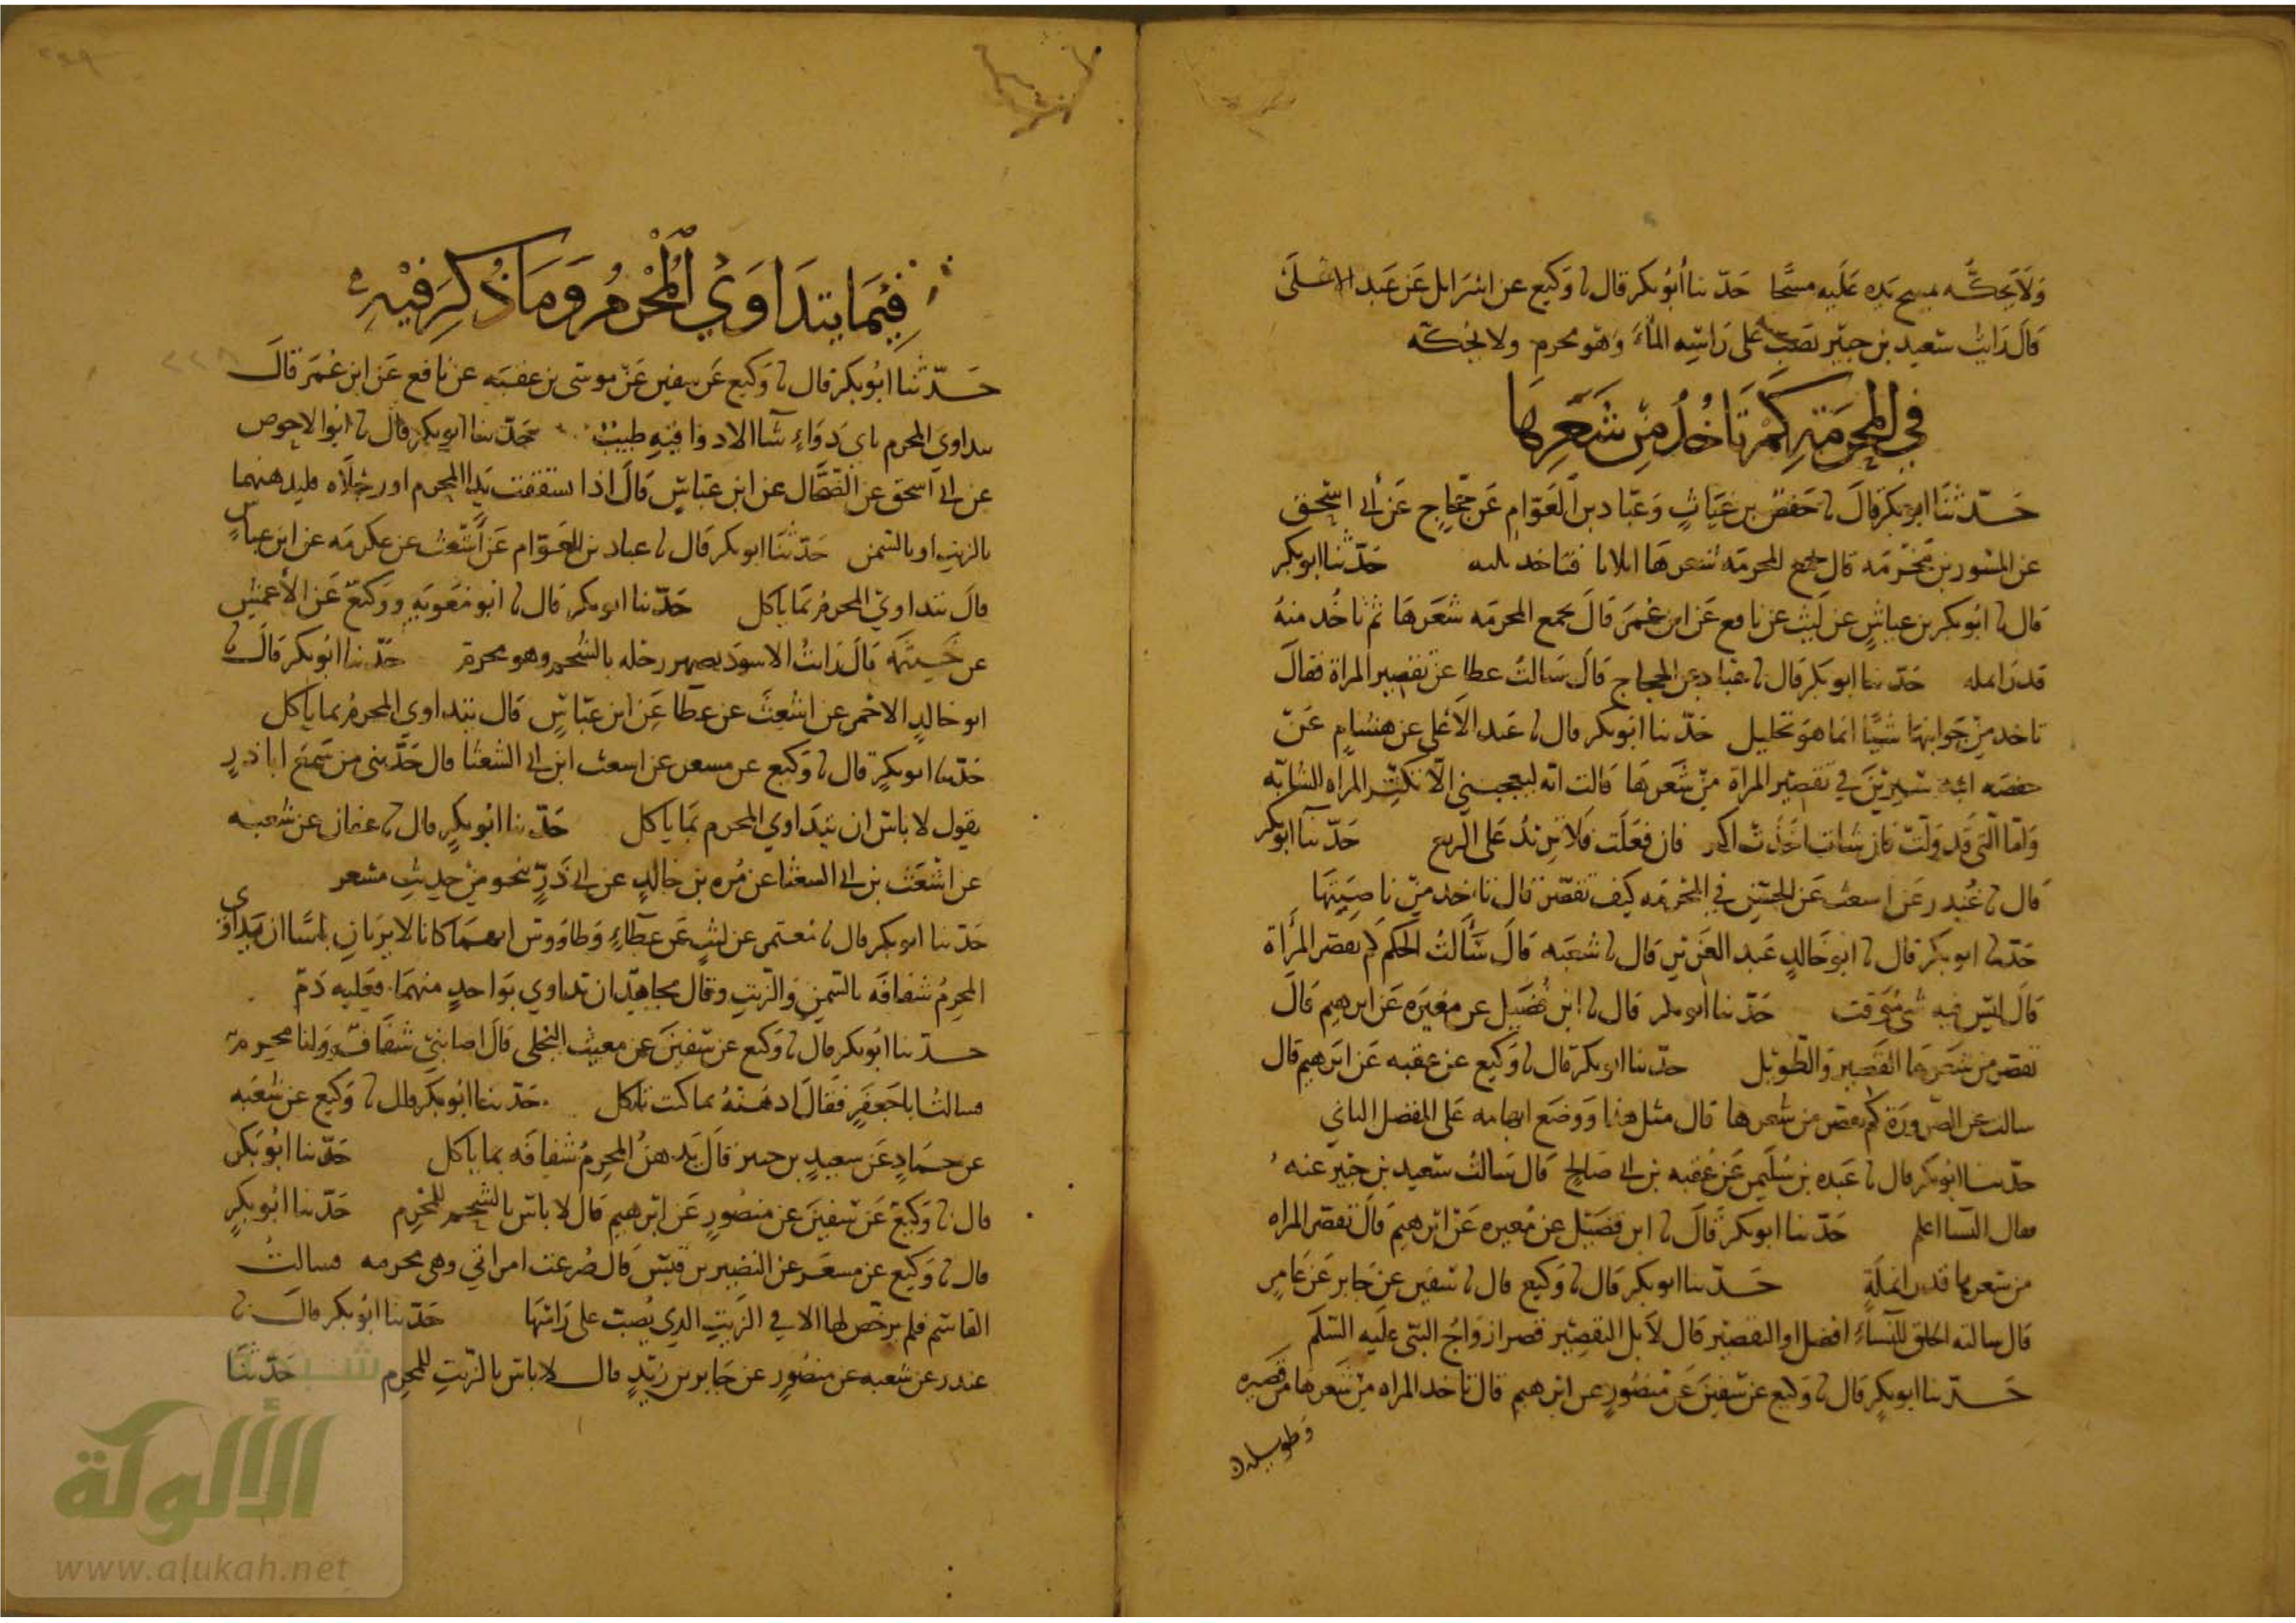 وَلَا يَحكّه يمسح يده عَلَيه مسحًا حَدّثنا أبُو بكر قال نا وَكيع عن اسْرَايل عَن عَبد الاعلى
قَالَ رَايتُ سَعيد بن جبَير يَصبّ على رَاسِه المآءَ وَهو محرم ولا يحكّه
في المحرمَةِ كَمْ تَاخُذُ مِنْ شَعَرِهَا
حَدّثنَا ابو بكر قَالَ نا حَفصُ بن غيَاثٍ وَعبّاد بن العَوّامِ عَن حجّاجٍ عَن أبي اسْحق
عن المسْور بن مَخرمَه قال تجمع المحرمَه شعرهَا فتاخد حَدّثنا ابو بكر
قال نا ابُو بكر بن عياشٍ عن ليثٍ عن نافع عَن ابن عُمَرَ قَالَ تجمع المحرمَه شَعَرهَا ثم تاخُد منهُ
قدر انمله حَدّثنا ابو بكر قال نا عبّاد عن الحجاج قَالَ سَالتُ عطا عن تقصير المراة فقالَ
تاخد من جَوانبهَا شيًا انما هوَ تحليل حَدّثنا ابو بكر قال نا عَبد الأعلى عن هشامٍ عَنْ
حفصَه ابنة سِيرينَ في تقصير المراة مِنْ شَعَرهَا قَالت انّه ليعجبني الّا تكثر المراه الشابّه
وَامّا الّتي قَد وَلّت فان شات اخَذت اكثر فان فعَلت فلا تزيد عَلى الربع حَدّثنا ابو بكر
قال نا غُندر عَن اسعث عَن الحسَنِ في المحْرمَه كيف تقصّر قال تاخد مِنْ ناصِيَتِهَا
حَدّثنا ابو بكر قال نا ابو خَالدٍ عَبد العَزيز قال نا شعبَه قَالَ سَأَلتُ الحكم كم تقصر المرأَة
قَالَ ليسَ فيه شي مُوقت حَدّثنا ابو بكر قال نا ابن فُضَيل عن مغيرَه عَن ابرهيم قَالَ
تقصر من شعَرهَا القَصير وَالطّويل حدّثنا ابو بكر قال نا وَكيع عن عقبه عَن ابرهيم قال
سالت عن الصّرورَة كم تقصر من شعرها قال مثل هذا وَوضع ابهامه عَلى المفصل الثاني
حدّثنا ابو بكر قال نا عَبده بن سُليمن عَن عُقبه بن أبي صَالحٍ قَال سَالتُ سَعيد بن جبَير عنه
فقال النّسا اعلم حَدّثنا ابو بكر قَالَ نا ابن فضَيل عن مغيره عَن ابرهيمَ قَالَ تقصر المراه
من شعرها قدر انملَةٍ حَدّثنا ابو بكر قال نا وَكيع قال نا سفين عن جَابر عَن عَامرٍ
قال سالته الحلق للنّساءِ افضل او التقصير قال لَا بل التقصير قصر ازوَاجُ النبّي عليَه السّلَم
حَدّثنا ابو بكرٍ قال نا وَكيع عن سفينَ عَن منصُورٍ عن ابرهيم قال تاخد المراه من شعرها من قصيره
وَطويله
فِيْمَا يَتدَاوَي الْمُحْرِمُ وَمَا ذُكِرَ فيْهِ
حَدّثنا ابُو بكر قال نا وَكيع عَن سفين عَنْ موسَى بن عقبَه عن نافع عَن ابن عُمَرَ قالَ
يتداوَى المحرم باى دَوَاءٍ شآ الا دوا فيْهِ طيبٌ حَدّثنا ابو بكر قالَ نا ابو الاحوص
عن أبي اسحق عن الضّحّاك عن ابن عبّاسٍ قَالَ اذا تشققت يَدا المحرم او رجلَاه فليدهنهما
بالزيت او بالسّمن حَدّثنَا ابو بكر قَال نا عباد بن العَوّام عَن أشعث عن عكرمَه عن ابن عباسٍ
قالَ يتداويْ المحرمُ بمَا ياكل حَدّثنا ابو بكر قال نا ابو معَويَه ووَكيعٌ عَن الأعمشِ
عن خَيثمَه قَالَ رَايتُ الاسوَد يصهر رجله بالشّحم وهو محرم حَدّثنا ابُو بكر قَالَ نا
ابو خَالدٍ الاحْمر عن اشعثَ عن عطا عَن ابن عبّاسٍ قال يتداوي المحرمُ بما ياكل
حَدّثنا ابو بكرٍ قال نا وَكيع عن مسعر عن اسعث ابن أبي الشعثا قال حَدّثني من سَمعَ اباذرٍ
يقول لا باسَ ان يتدَاوي المحرم بمَا ياكل حَدّثنا ابُو بكرٍ قال نا عفان عن شُعبه
عن اشعَث بن أبي السعثا عن مُره بن خالدٍ عن أبي ذَرٍّ نحو مِنْ حديثِ مسعر
حَدّثنا ابو بكر قال نا معتمر عن ليثٍ عَن عَطآءٍ وَطاوُوس انهمَا كانا لا يرَيَانِ باسًا ان يتداوَى
المحرمُ شقاقَه بالسّمنِ وَالزّيتِ وقال مجاهدٌ ان تداوي بوَاحدٍ منهمَا فعَليه دَمٌ
حدّثنا ابُو بكر قال نا وَكيع عن سفينَ عن مغيث البَجلي قَالَ اصَابَني شقَاقٌ وَانا محرم
فسالتُ اباجَعفَرٍ فقَالَ ادهنْهُ بما كنت تاكل حَدّثنا ابُو بكر قال نا وَكيع عن شعبَه
عن حَمَادٍ عَن سعيدٍ بن جبير قالَ يَدهنُ المحرِمُ شقاقَه بما ياكل حَدّثنا ابُو بَكر
قال نا وَكيعٌ عَن سفينَ عن منصُورٍ عَن ابرهيم قالَ لا باسَ بالشحم للمُحرمِ حَدّثنا ابُو بكرٍ
قال نا وَكيع عن مسعَر عن النضير بن قيس قَال صُرعت امراتي وهى محرمه فسالتُ
القاسَم فلم يرخّص لها الا في الزيتِ الذي يُصبّ على رَاسهَا حَدّثنا ابُو بكر قالَ نا
غندر عن شعبه عن منصُورٍ عن جَابر بن زيدٍ قال لا باسَ بالزيتِ للمحرِم حَدّثنَا
شبكة
الألوكة
www.alukah.net